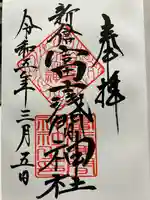 奉拝
新倉
富士浅間神社
令和五年三月五日